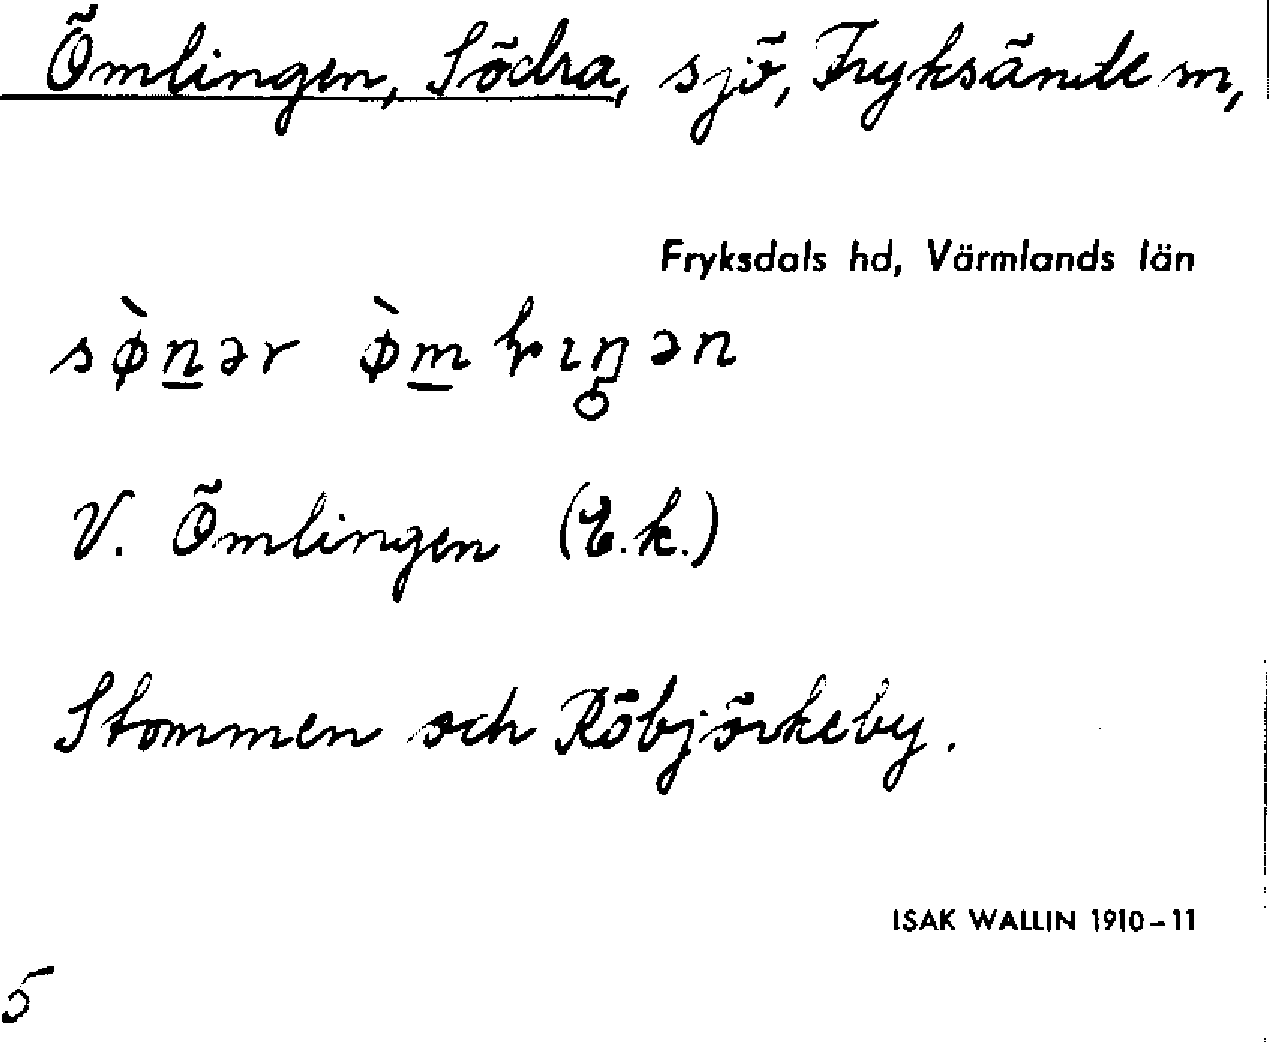 Ömlingen, Södra, sjö, Fryksände sn,
Fryksdals hd, Värmlands län
V. Ömlingen (E.k.)
Stommen och Röbjörkeby.
ISAK WALLIN 1910-11
5